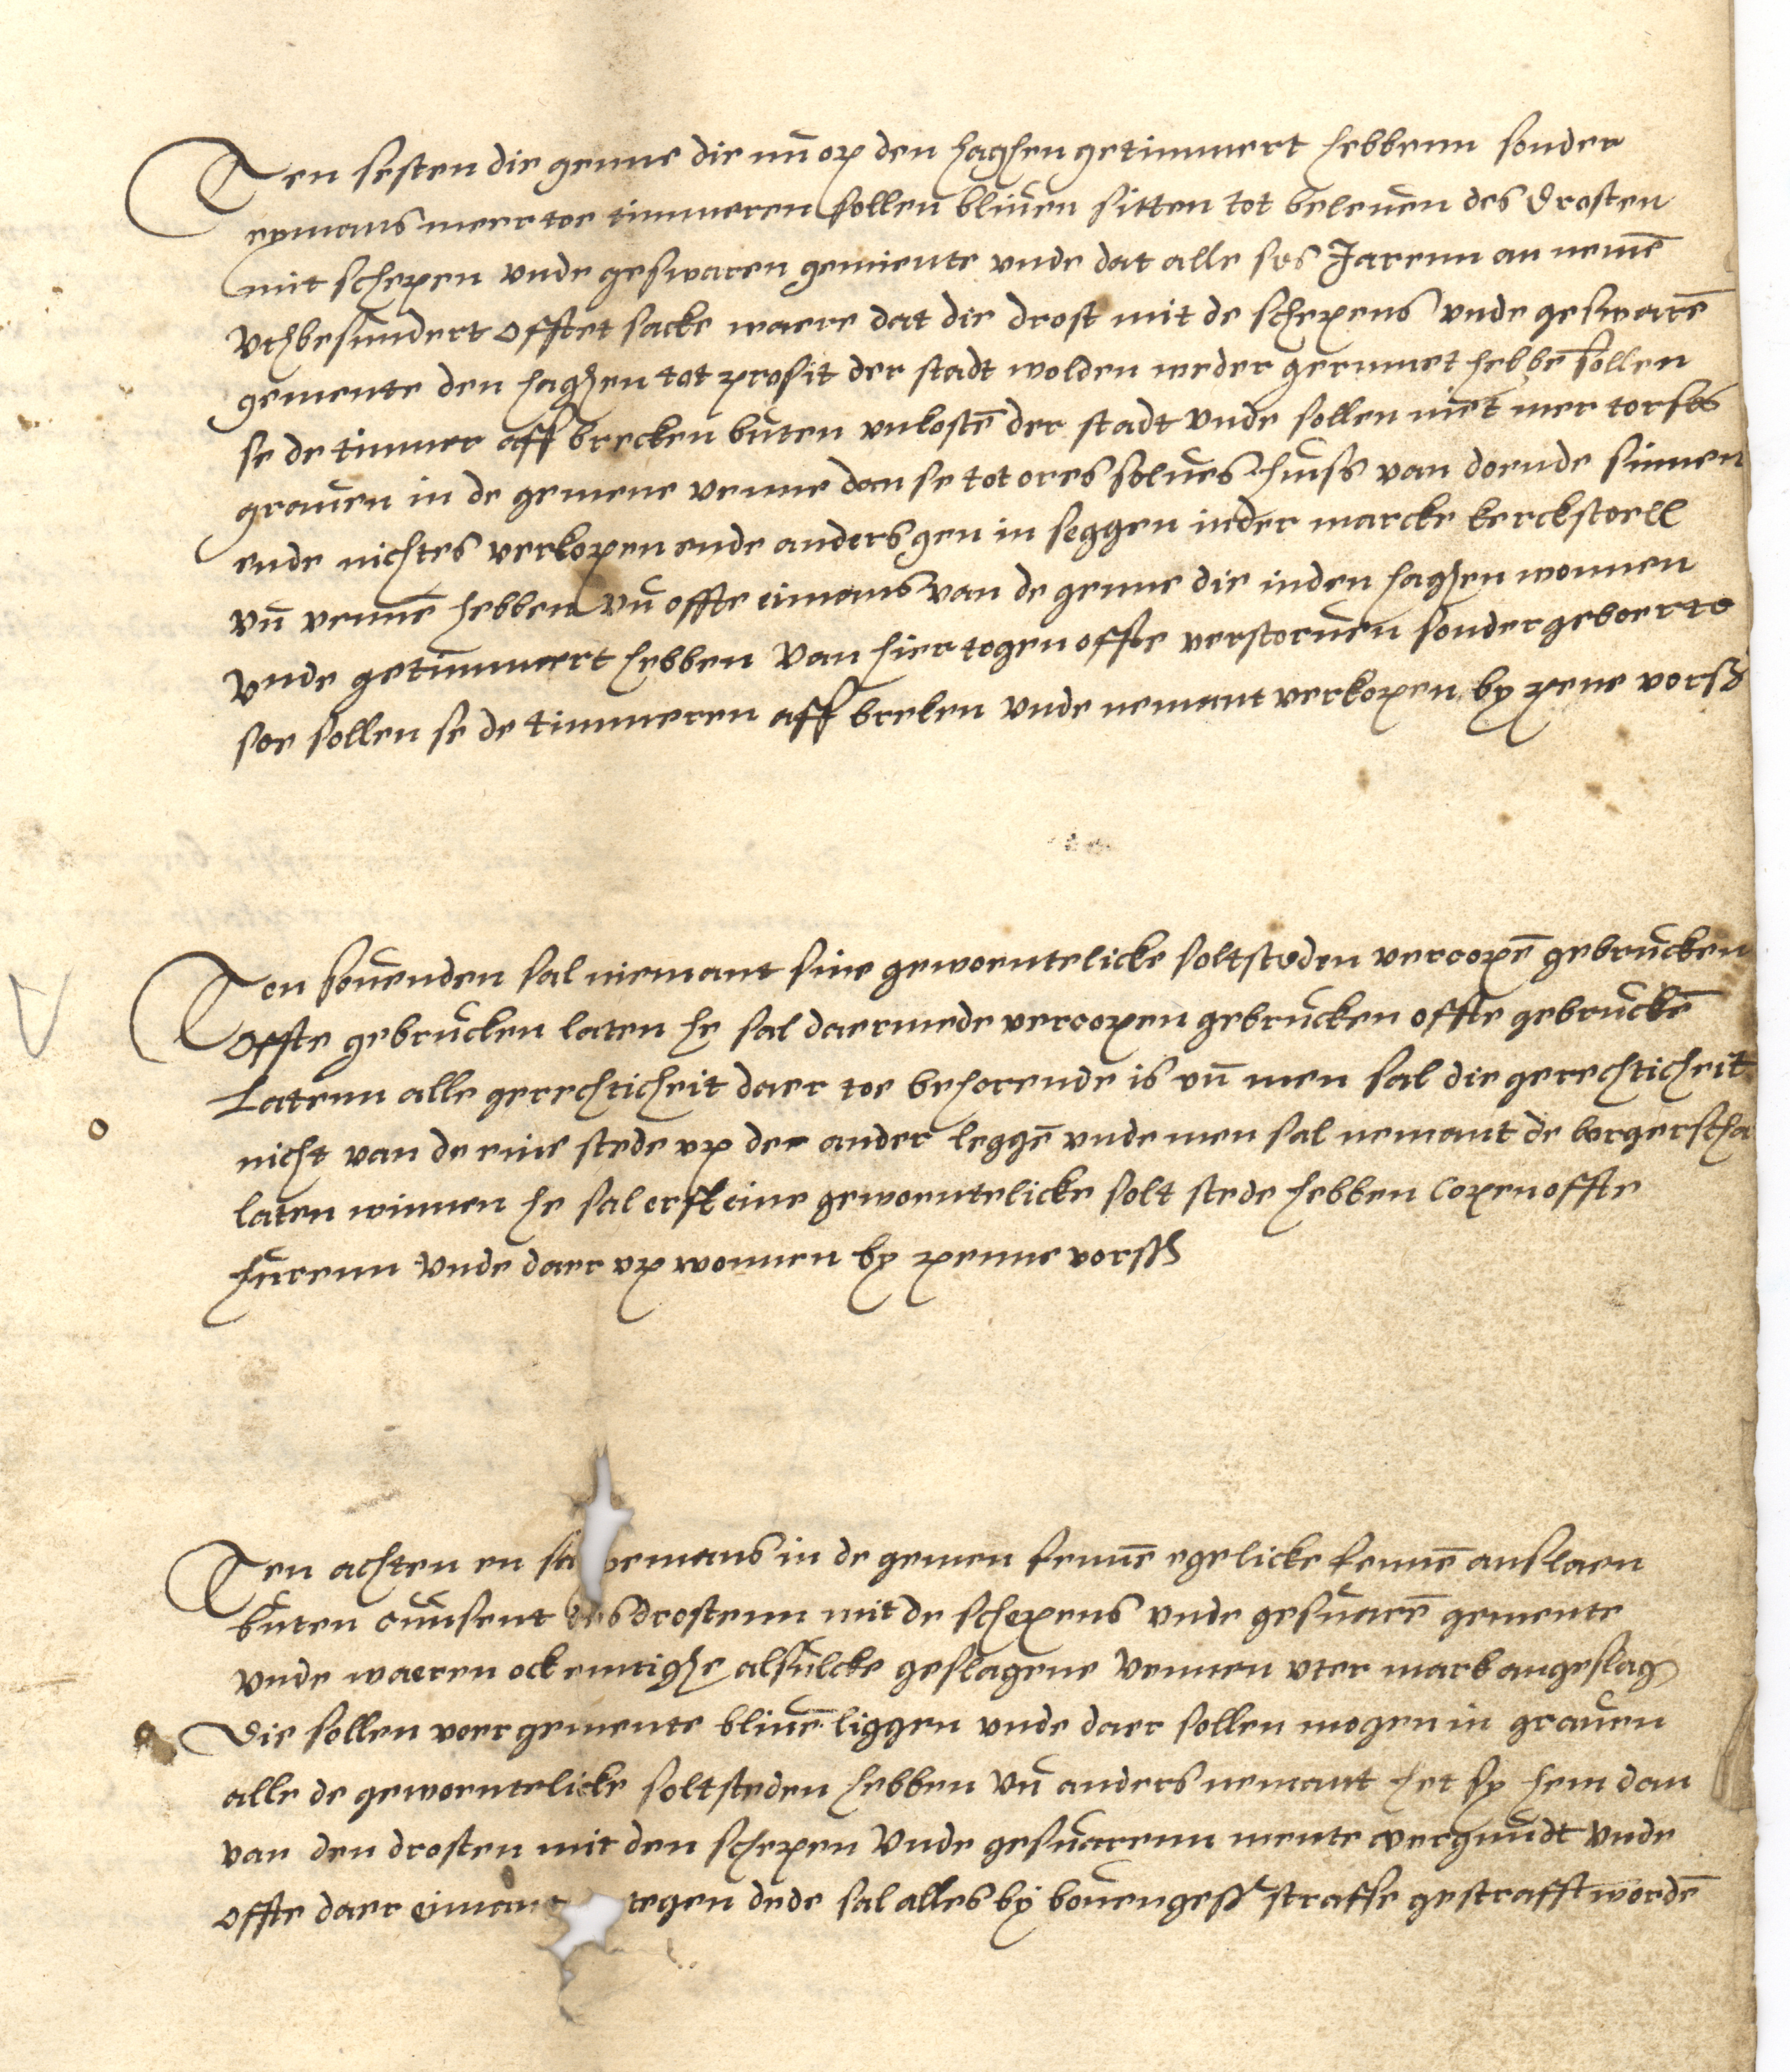 Ten sesten die genne die nu op den haghen getimmert hebbenn sonder
eymans meer toe timmeren sollen bliven sitten tot beleven des Drosten
mit schepen vnde geswaren gemiente vnde dat alle ses Jarenn an nemē
Vthbesundert offtet sacke waere dat die drost mit de schepens vnde geswarē
gemente den haghen tot profit der stadt wolden weder gerumet hebbē sollen
se de timmer aff brecken buten vnkostē der stadt vnde sollen niet mer torfes
graven in de gemene venne dan se tot ores selves huiss van doende sinnen
ende nichtes verkopen ende anders gen in seggen inder marcke kerckstoell
vn̄ vennē hebben vn̄ offte eimans van de genne die inden haghen wonnen
Vnde getimmert hebben van hier togen offte verstorven sonder geboerte
soe sollen se de timmeren aff breken vnde nemant verkopen by pene vorß
Ten sovenden sal niemant sine gewoentelicke soltsteden vercopē gebrucken
Offte gebrucken laten he sal daermede vercopen gebrucken offte gebruckē
Latenn alle gerechticheit daer toe behorende is vn̄ men sal die gerechticheit
nicht van de eine stede vp der ander leggē vnde men sal nemant de borgerscha
laten winnen he sal erst eine gewoentelicke solt stede hebben copen offte
hurenn Vnde daer vp wonnen by penne vorss
Ten achten en sa yemans in de gemen fennē egelicke fennē anslaen
buten consent des drostenn mit de schepens vnde geswarē gemente
vnde waeren ock enntighe alsulcke geslagene vennen vter mark angeslag
Die sollen voer gemente blivē liggen vnde daer sollen mogen in graven
alle de gewoentelicke soltsteden hebben vn̄ anders nemant het sy hem dan
van den drosten mit den schepen Vnde geswarenn mente vergundt vnde
offte daer eimant tegen dede sal alles by bovengess straffe gestrafft wordē